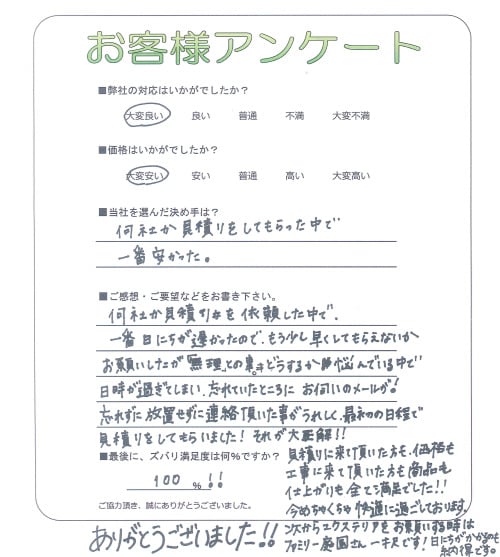 お客様アンケート
■弊社の対応はいかがでしたか？
大変良い 良い 普通 不満 大変不満
■価格はいかがでしたか？
大変安い 安い 普通 高い 大変高い
■当社を選んだ決め手は？
何社か見積りをしてもらった中で
一番安かった。
■ご感想・ご要望などをお書き下さい。
何社か見積りを依頼した中で、
一番日にちが遅かったので、もう少し早くしてもらえないか
お願いしたが「無理」との事。どうするか悩んでいる中で
日時が過ぎてしまい、忘れていたところに お伺いのメールが!
忘れずに放置せずに連絡頂いた事がうれしく、最初の日程で
見積りをしてもらいました! それが大正解!!
■最後に、ズバリ満足度は何%ですか？
100 % !!
見積りに来て頂いた方も、価格も
工事に来て頂いた方も商品も
仕上がりも全て満足でした!!
今めちゃくちゃ快適に過ごしております。
次からエクステリアをお願いする時は
ファミリー庭園さん一本です! 日にちがかかるのも
納得です
ご協力頂き、誠にありがとうございました。
ありがとうございました!!